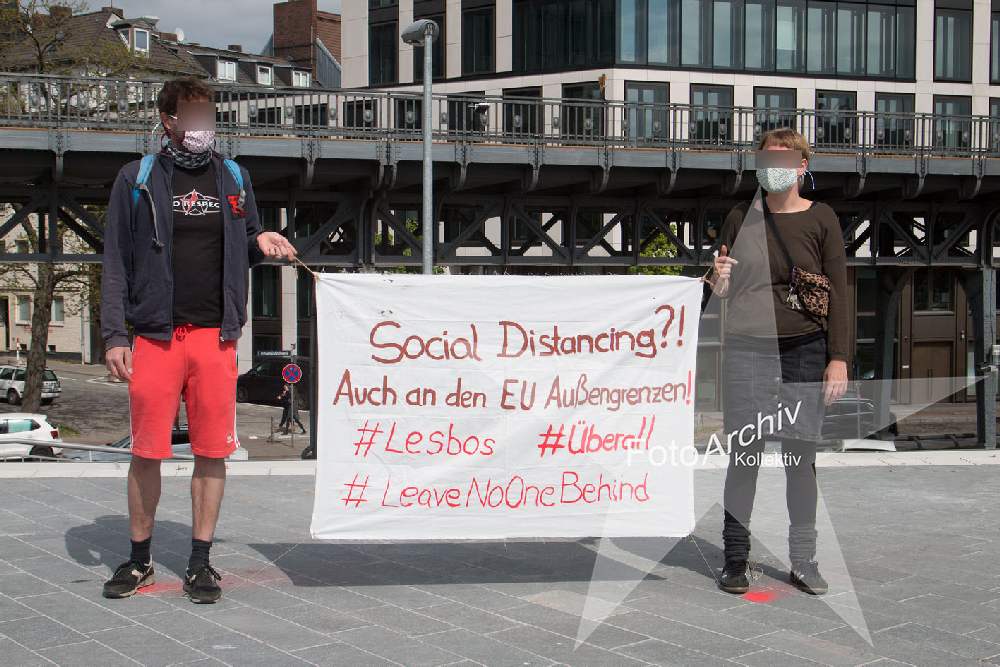 Social Distancing?!
Auch an den EU Außengrenzen!
#Lesbos #Überall
#LeaveNoOneBehind
FotoArchiv
Kollektiv